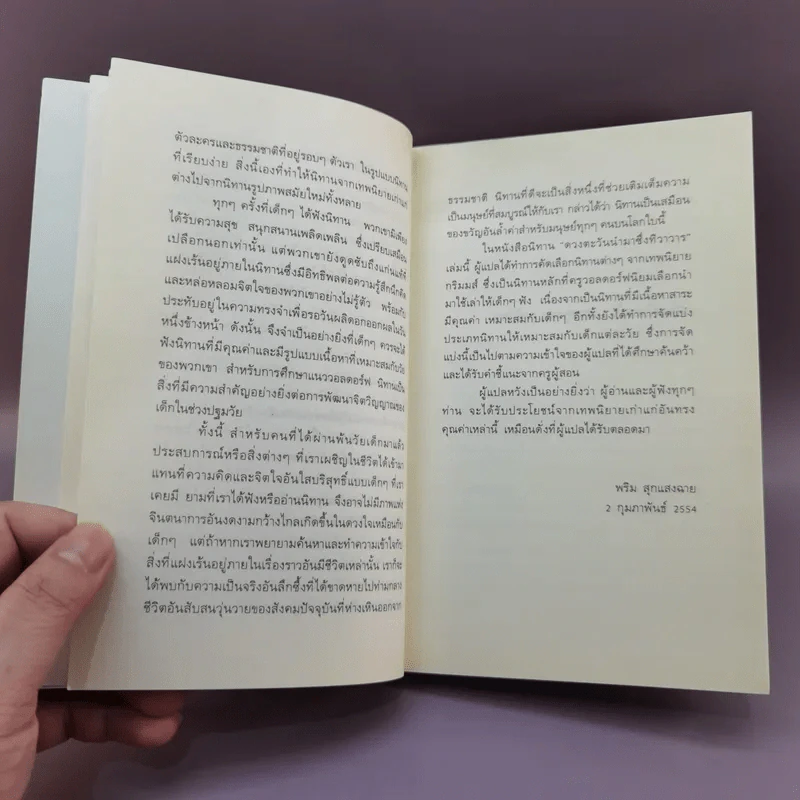 ตัวละครและธรรมชาติที่อยู่รอบๆ ตัวเรา ในรูปแบบนิทาน
ที่เรียบง่าย สิ่งนี้เองที่ทำให้นิทานจากเทพนิยายเก่าแก่
ต่างไปจากนิทานรูปภาพสมัยใหม่ทั้งหลาย
ทุกๆ ครั้งที่เด็กๆ ได้ฟังนิทาน พวกเขามิเพียง
ได้รับความสุข สนุกสนานเพลิดเพลิน ซึ่งเปรียบเสมือน
เปลือกนอกเท่านั้น แต่พวกเขายังดูดซับถึงแก่นแท้ที่
แฝงเร้นอยู่ภายในนิทานซึ่งมีอิทธิพลต่อความรู้สึกนึกคิด
และหล่อหลอมจิตใจของพวกเขาอย่างไม่รู้ตัว พร้อมกับ
ประทับอยู่ในความทรงจำเพื่อรอวันผลิดอกออกผลในวัน
หนึ่งข้างหน้า ดังนั้น จึงจำเป็นอย่างยิ่งที่เด็กๆ ควรจะได้
ฟังนิทานที่มีคุณค่าและมีรูปแบบเนื้อหาที่เหมาะสมกับวัย
ของพวกเขา สำหรับการศึกษาแนววอลดอร์ฟ นิทานเป็น
สิ่งที่มีความสำคัญอย่างยิ่งต่อการพัฒนาจิตวิญญาณของ
เด็กในช่วงปฐมวัย
ทั้งนี้ สำหรับคนที่ได้ผ่านพ้นวัยเด็กมาแล้ว
ประสบการณ์หรือสิ่งต่างๆ ที่เราเผชิญในชีวิตได้เข้ามา
แทนที่ความคิดและจิตใจอันใสบริสุทธิ์แบบเด็กๆ ที่เรา
เคยมี ยามที่เราได้ฟังหรืออ่านนิทาน จึงอาจไม่มีภาพแห่ง
จินตนาการอันงดงามกว้างไกลเกิดขึ้นในดวงใจเหมือนกับ
เด็กๆ แต่ถ้าหากเราพยายามค้นหาและทำความเข้าใจกับ
สิ่งที่แฝงเร้นอยู่ภายในเรื่องราวอันมีชีวิตเหล่านั้น เราก็จะ
ได้พบกับความเป็นจริงอันลึกซึ้งที่ได้ขาดหายไปท่ามกลาง
ชีวิตอันสับสนวุ่นวายของสังคมปัจจุบันที่ห่างเหินออกจาก
ธรรมชาติ นิทานที่ดีจะเป็นสิ่งหนึ่งที่ช่วยเติมเต็มความ
เป็นมนุษย์ที่สมบูรณ์ให้กับเรา กล่าวได้ว่า นิทานเป็นเสมือน
ของขวัญอันล้ำค่าสำหรับมนุษย์ทุกๆ คนบนโลกใบนี้
ในหนังสือนิทาน "ดวงตะวันนำมาซึ่งทิวาวาร"
เล่มนี้ ผู้แปลได้ทำการคัดเลือกนิทานต่างๆ จากเทพนิยาย
กริมมส์ ซึ่งเป็นนิทานหลักที่ครูวอลดอร์ฟนิยมเลือกนำ
มาใช้เล่าให้เด็กๆ ฟัง เนื่องจากเป็นนิทานที่มีเนื้อหาสาระ
มีคุณค่า เหมาะสมกับเด็กๆ อีกทั้งยังได้ทำการจัดแบ่ง
ประเภทนิทานให้เหมาะสมกับเด็กแต่ละวัย ซึ่งการจัด
แบ่งนี้เป็นไปตามความเข้าใจของผู้แปลที่ได้ศึกษาค้นคว้า
และได้รับคำชี้แนะจากครูผู้สอน
ผู้แปลหวังเป็นอย่างยิ่งว่า ผู้อ่านและผู้ฟังทุกๆ
ท่าน จะได้รับประโยชน์จากเทพนิยายเก่าแก่อันทรง
คุณค่าเหล่านี้ เหมือนดั่งที่ผู้แปลได้รับตลอดมา
พริม สุกแสงฉาย
2 กุมภาพันธ์ 2554